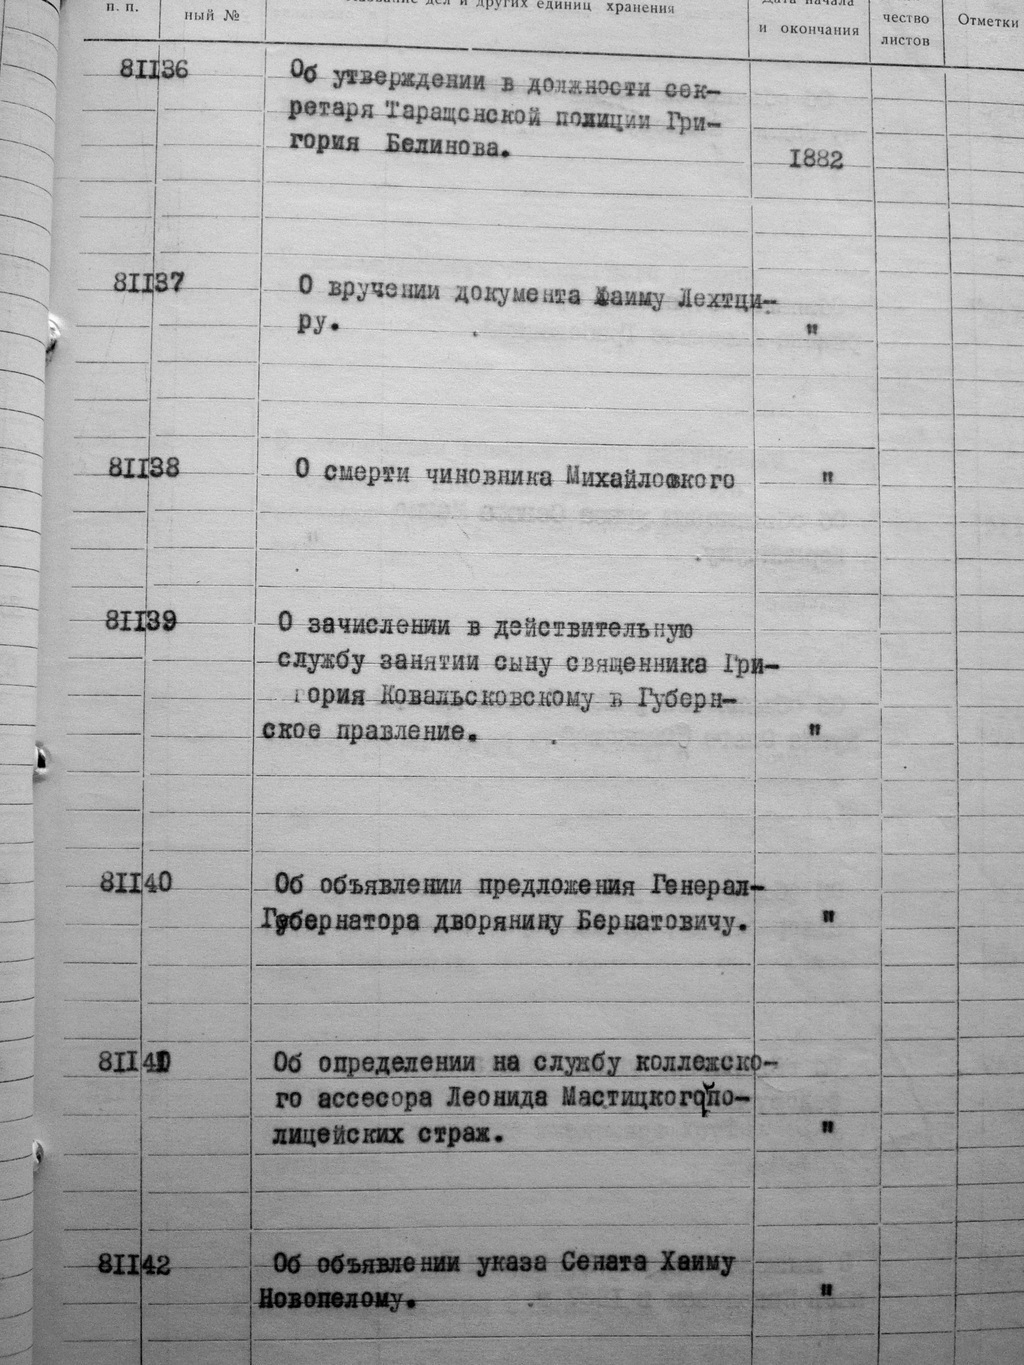 п. п.
ный №
дел и других единиц хранения
Дата начала
и окончания
чество
листов
Отметки
81136
Об утверждении в должности сек-
ретаря Таращенской полиции Гри-
гория Белинова.
1882
81137
О вручении документа Хаиму Лехтци-
ру.
"
81138
О смерти чиновника Михайловкого
"
81139
О зачислении в действительную
службу занятии сыну священника Гри-
гория Ковальсковскому в Губерн-
ское правление.
"
81140
Об объявлении предложения Генерал-
Губернатора дворянину Бернатовичу.
"
81141
Об определении на службу коллежско-
го ассесора Леонида Мастицкого по-
лицейских страж.
"
81142
Об объявлении указа Сената Хаиму
Новопелому.
"